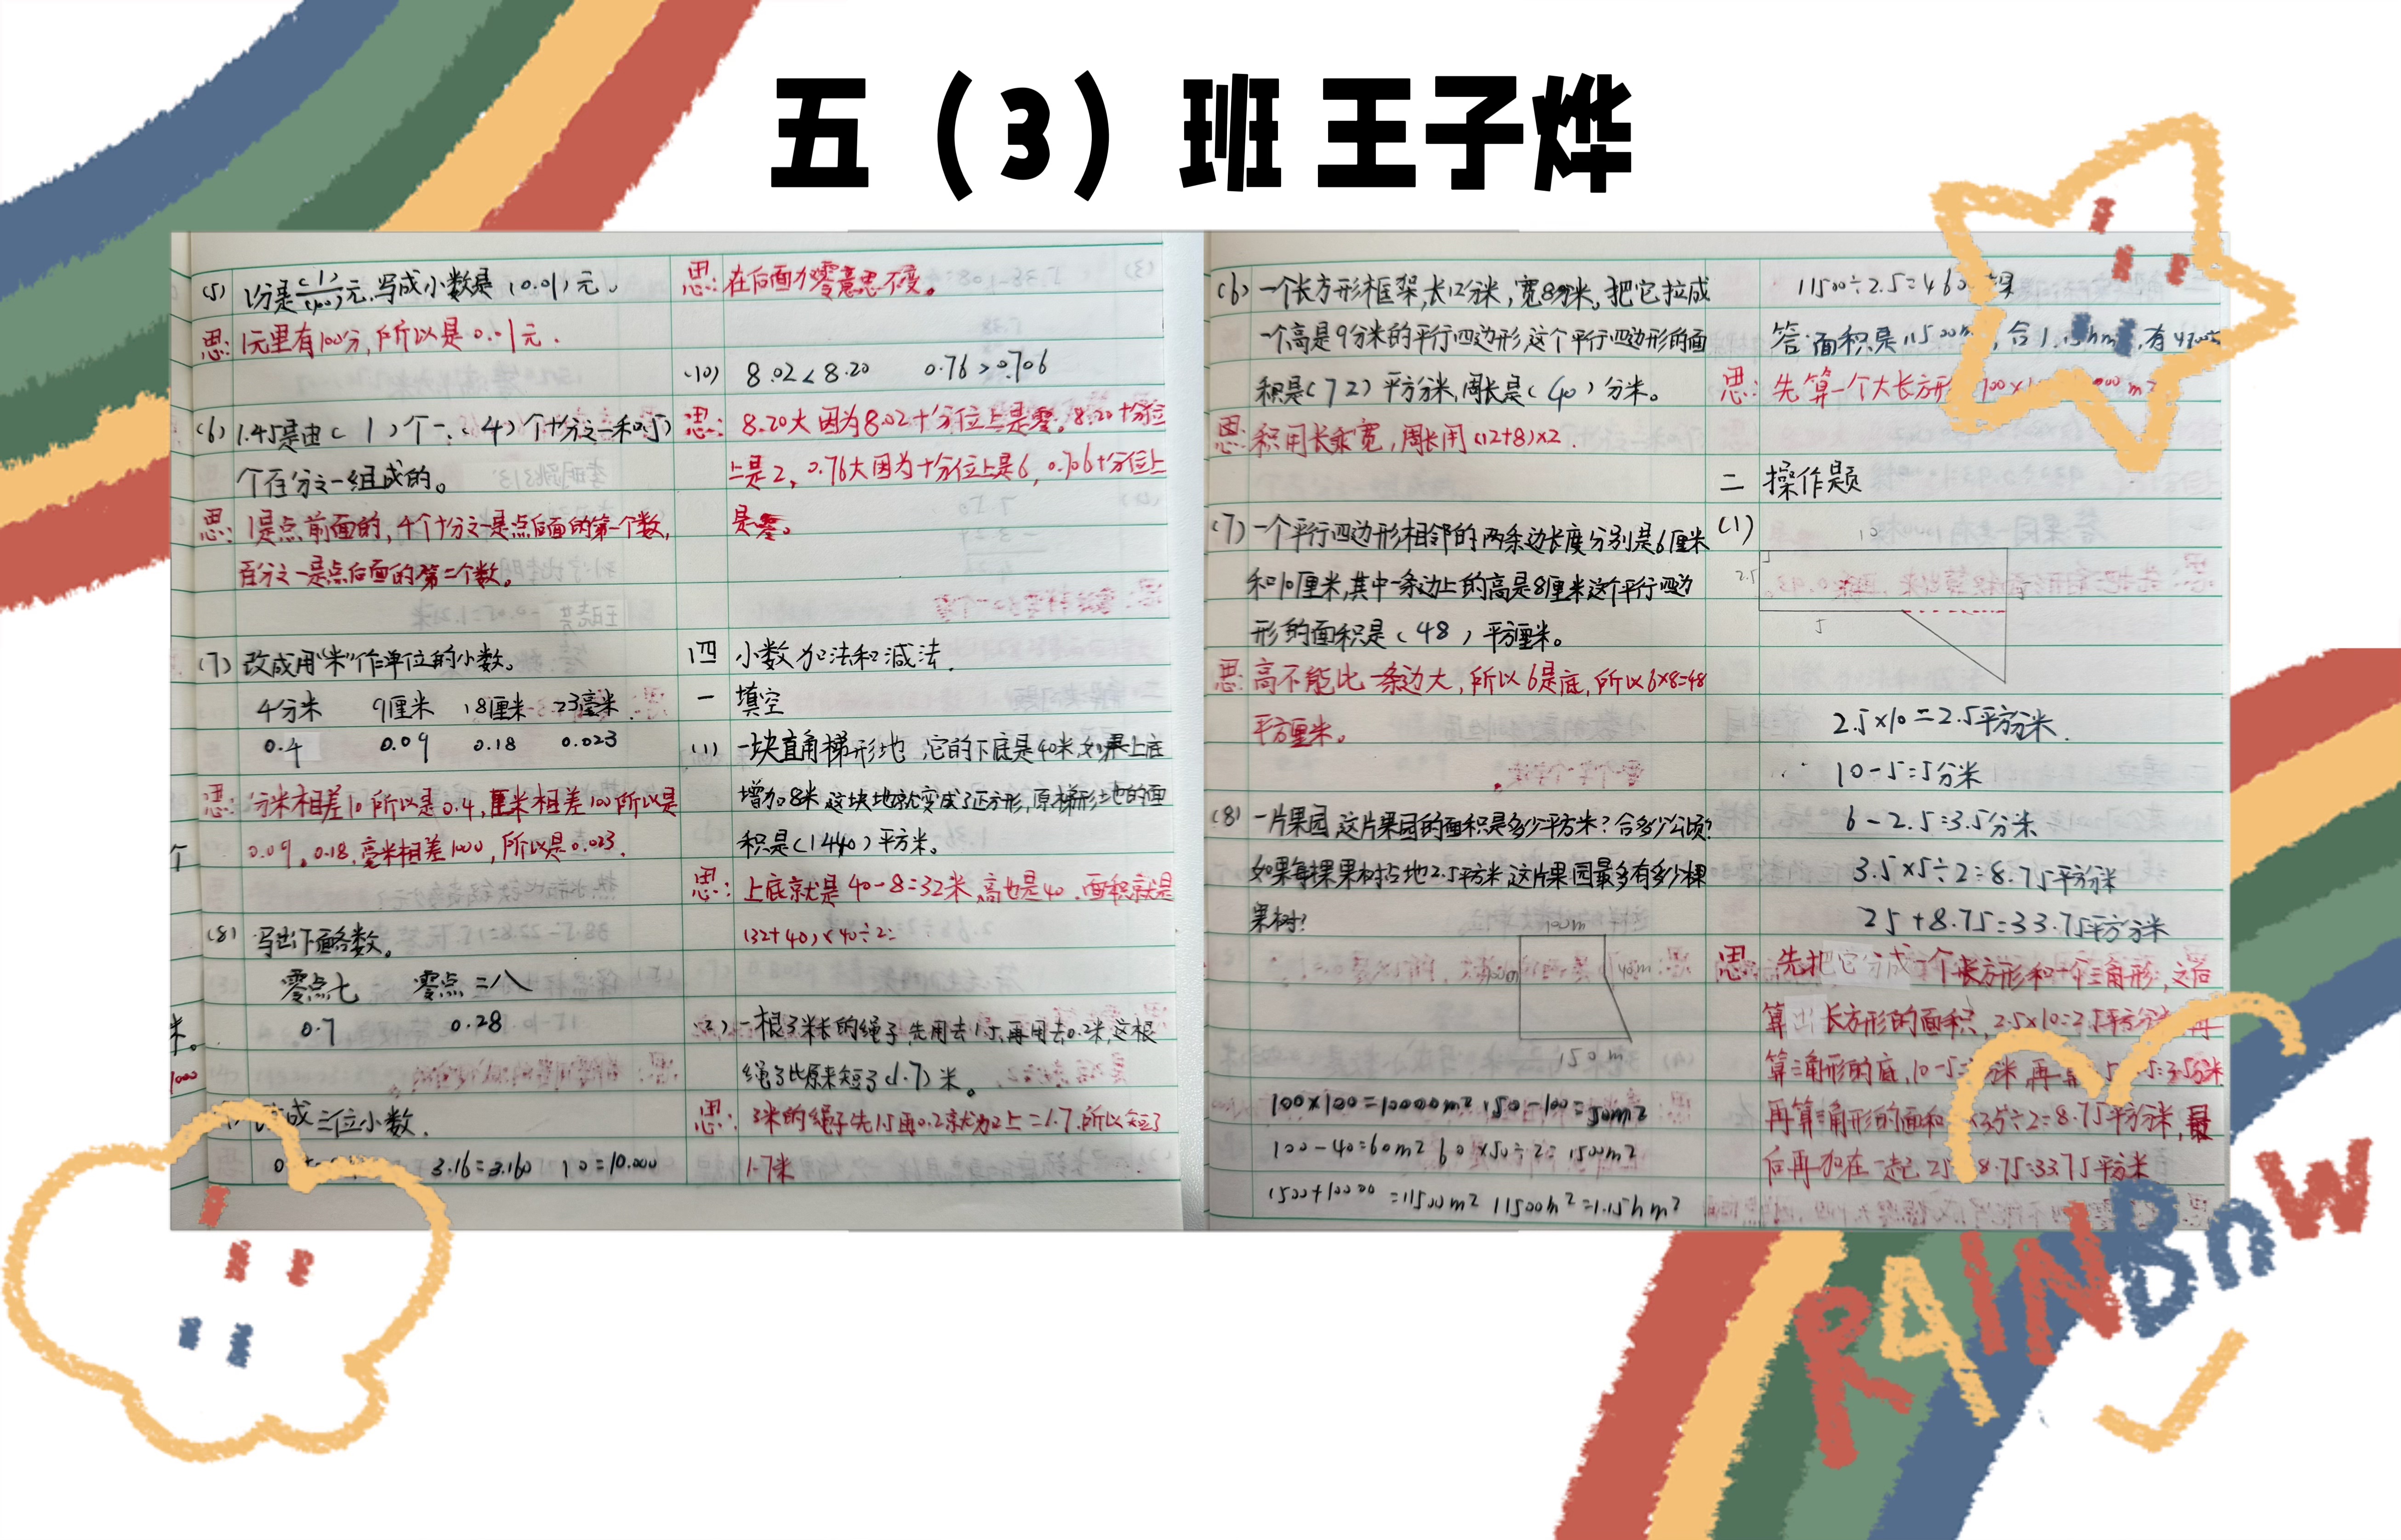 五（3）班 王子烨
(5) 1分是(1)/(100)元,写成小数是(0.01)元。
思:1元里有100分,所以是0.01元.
(6) 1.45是由( 1 )个一,( 4 )个十分之一和(5)
个百分之一组成的。
思:1是点前面的,4个十分之一是点后面的第一个数,
百分之一是点后面的第二个数。
(7) 改成用“米”作单位的小数。
4分米 9厘米 18厘米 23毫米
0.4 0.09 0.18 0.023
思:分米相差10所以是0.4,厘米相差100所以是
0.09。0.18,毫米相差1000,所以是0.023.
(8) 写出下面各数。
零点七 零点二八
0.7 0.28
成三位小数.
3.16=3.160 10=10.000
思:在后面加零意思不变。
(10) 8.02<8.20 0.76>0.706
思:8.20大因为8.02十分位上是零。8.20十分位
上是2,0.76大因为十分位上是6,0.706十分位上
是零。
四 小数加法和减法.
一 填空
(1) 一块直角梯形地 它的下底是40米,如果上底
增加8米,这块地就变成了正方形,原梯形地的面
积是(1440)平方米。
思:上底就是40-8=32米,高也是40.面积就是
(32+40)×40÷2=
(2) 一根3米长的绳子,先用去1.5,再用去0.2米,这根
绳子比原来短了(1.7)米。
思:3米的绳子先1.5再0.2就为以上=1.7.所以短了
1.7米
(6) 一个长方形框架,长12分米,宽8分米。把它拉成
一个高是9分米的平行四边形,这个平行四边形的面
积是(72)平方分米,周长是(40)分米。
思:积用长乘宽,周长用(12+8)×2.
(7) 一个平行四边形相邻的两条边长度分别是6厘米
和10厘米,其中一条边上的高是8厘米这个平行四边
形的面积是(48)平方厘米。
思:高不能比一条边大,所以6是底,所以6×8=48
平方厘米。
(8) 一片果园,这片果园的面积是多少平方米?合多少公顷?
如果每棵果树占地2.5平方米,这片果园最多有多少棵
果树?
100m
40m
150m
100×100=10000m2 150-100=50m2
100-40=60m2 60×50÷2=1500m2
1500+10000=11500m2 11500m2=1.15hm2
11500÷2.5=460
答:面积是11500m
思:先算一个大长方形
二 操作题
(1)
10
2.5
5
2.5×10=2.5平方分米.
10-5=5分米
6-2.5=3.5分米
3.5×5÷2=8.75平方分米
25+8.75=33.75平方分米
思:先把它分成一个长方形和一个三角形,之后
算出长方形的面积,2.5×10=2.5平方分米,再
算三角形的底,10-5=
再算三角形的面积 ×3.5÷2=8.75平方分米,最
后再加在一起,25 8.75=33.75平方米
RAINBOW